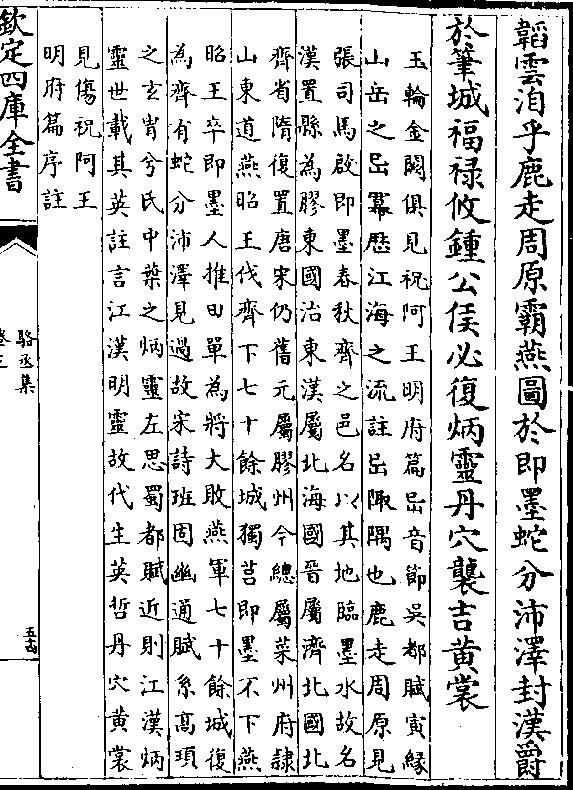 韜雲洎乎鹿走周原霸燕圖於即墨蛇分沛澤封漢爵
於筆城福禄攸鍾公侯必復炳靈丹穴襲吉黄裳
玉輪金闕俱見祝阿王明府篇㞳音節吳都賦寅緣
山岳之㞳羃歴江海之流註㞳陬隅也鹿走周原見
張司馬啟即墨春秋齊之邑名以其地臨墨水故名
漢置縣為膠東國治東漢屬北海國晉屬濟北國北
齊省隋復置唐宋仍舊元屬膠州今總屬萊州府隷
山東道燕昭王伐齊下七十餘城獨莒即墨不下燕
昭王卒即墨人推田單為將大敗燕軍七十餘城復
為齊有蛇分沛澤見過故宋詩班固幽通賦系髙頊
之玄胄兮氏中葉之炳靈左思蜀都賦近則江漢炳
靈世載其英註言江漢明靈故代生英哲丹穴黄裳
見傷祝阿王
明府篇序註
欽定四庫全書
駱丞集
卷三